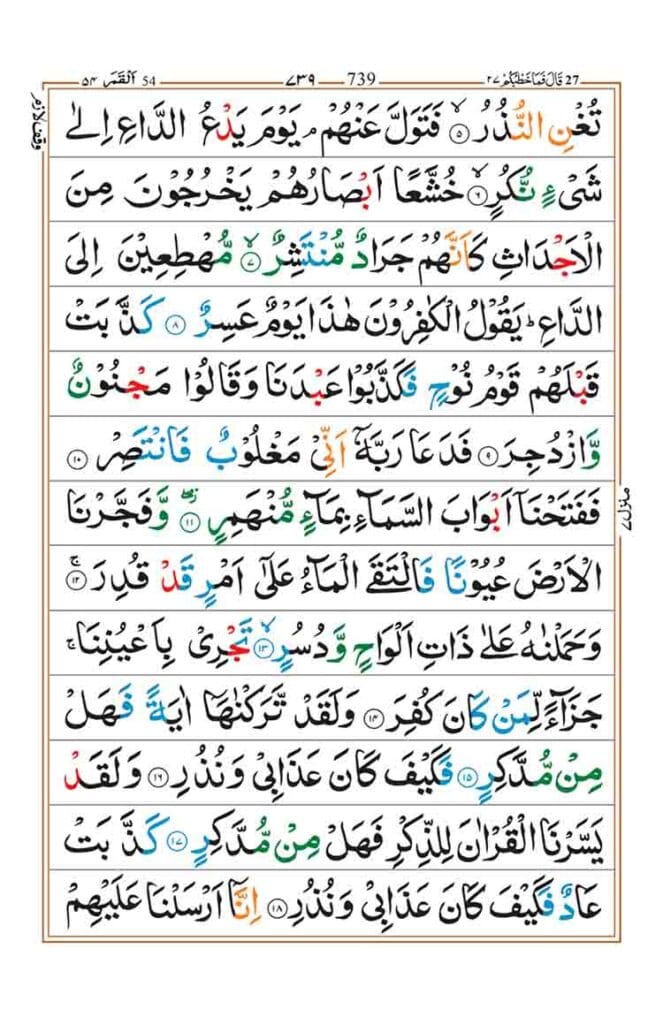 ٥٤ اَلْقَمَر 54 ٧٣٩ 739 ٢٧ قَالَ فَمَا خَطْبُكُمْ 27
وقف لازم
تُغْنِ النُّذُرُ ۙ﴿۵﴾ فَتَوَلَّ عَنْهُمْ ۘ يَوْمَ يَدْعُ الدَّاعِ اِلٰى
شَىْءٍ نُّكُرٍ ۙ﴿۶﴾ خُشَّعًا اَبْصَارُهُمْ يَخْرُجُوْنَ مِنَ
الْاَجْدَاثِ كَاَنَّهُمْ جَرَادٌ مُّنْتَشِرٌ ۙ﴿۷﴾ مُّهْطِعِيْنَ اِلَى
الدَّاعِ ؕ يَقُوْلُ الْكٰفِرُوْنَ هٰذَا يَوْمٌ عَسِرٌ ﴿۸﴾ كَذَّبَتْ
قَبْلَهُمْ قَوْمُ نُوْحٍ فَكَذَّبُوْا عَبْدَنَا وَقَالُوْا مَجْنُوْنٌ
وَّازْدُجِرَ ﴿۹﴾ فَدَعَا رَبَّهٗۤ اَنِّىْ مَغْلُوْبٌ فَانْتَصِرْ ﴿۱۰﴾
فَفَتَحْنَاۤ اَبْوَابَ السَّمَآءِ بِمَآءٍ مُّنْهَمِرٍ ۖ﴿۱۱﴾ وَّفَجَّرْنَا
الْاَرْضَ عُيُوْنًا فَالْتَقَى الْمَآءُ عَلٰٓى اَمْرٍ قَدْ قُدِرَ ۚ﴿۱۲﴾
وَحَمَلْنٰهُ عَلٰى ذَاتِ اَلْوَاحٍ وَّدُسُرٍ ۙ﴿۱۳﴾ تَجْرِىْ بِاَعْيُنِنَا ۚ
جَزَآءً لِّمَنْ كَانَ كُفِرَ ﴿۱۴﴾ وَلَقَدْ تَّرَكْنٰهَاۤ اٰيَةً فَهَلْ
مِنْ مُّدَّكِرٍ ﴿۱۵﴾ فَكَيْفَ كَانَ عَذَابِىْ وَنُذُرِ ﴿۱۶﴾ وَلَقَدْ
يَسَّرْنَا الْقُرْاٰنَ لِلذِّكْرِ فَهَلْ مِنْ مُّدَّكِرٍ ﴿۱۷﴾ كَذَّبَتْ
عَادٌ فَكَيْفَ كَانَ عَذَابِىْ وَنُذُرِ ﴿۱۸﴾ اِنَّاۤ اَرْسَلْنَا عَلَيْهِمْ
منزل ٧